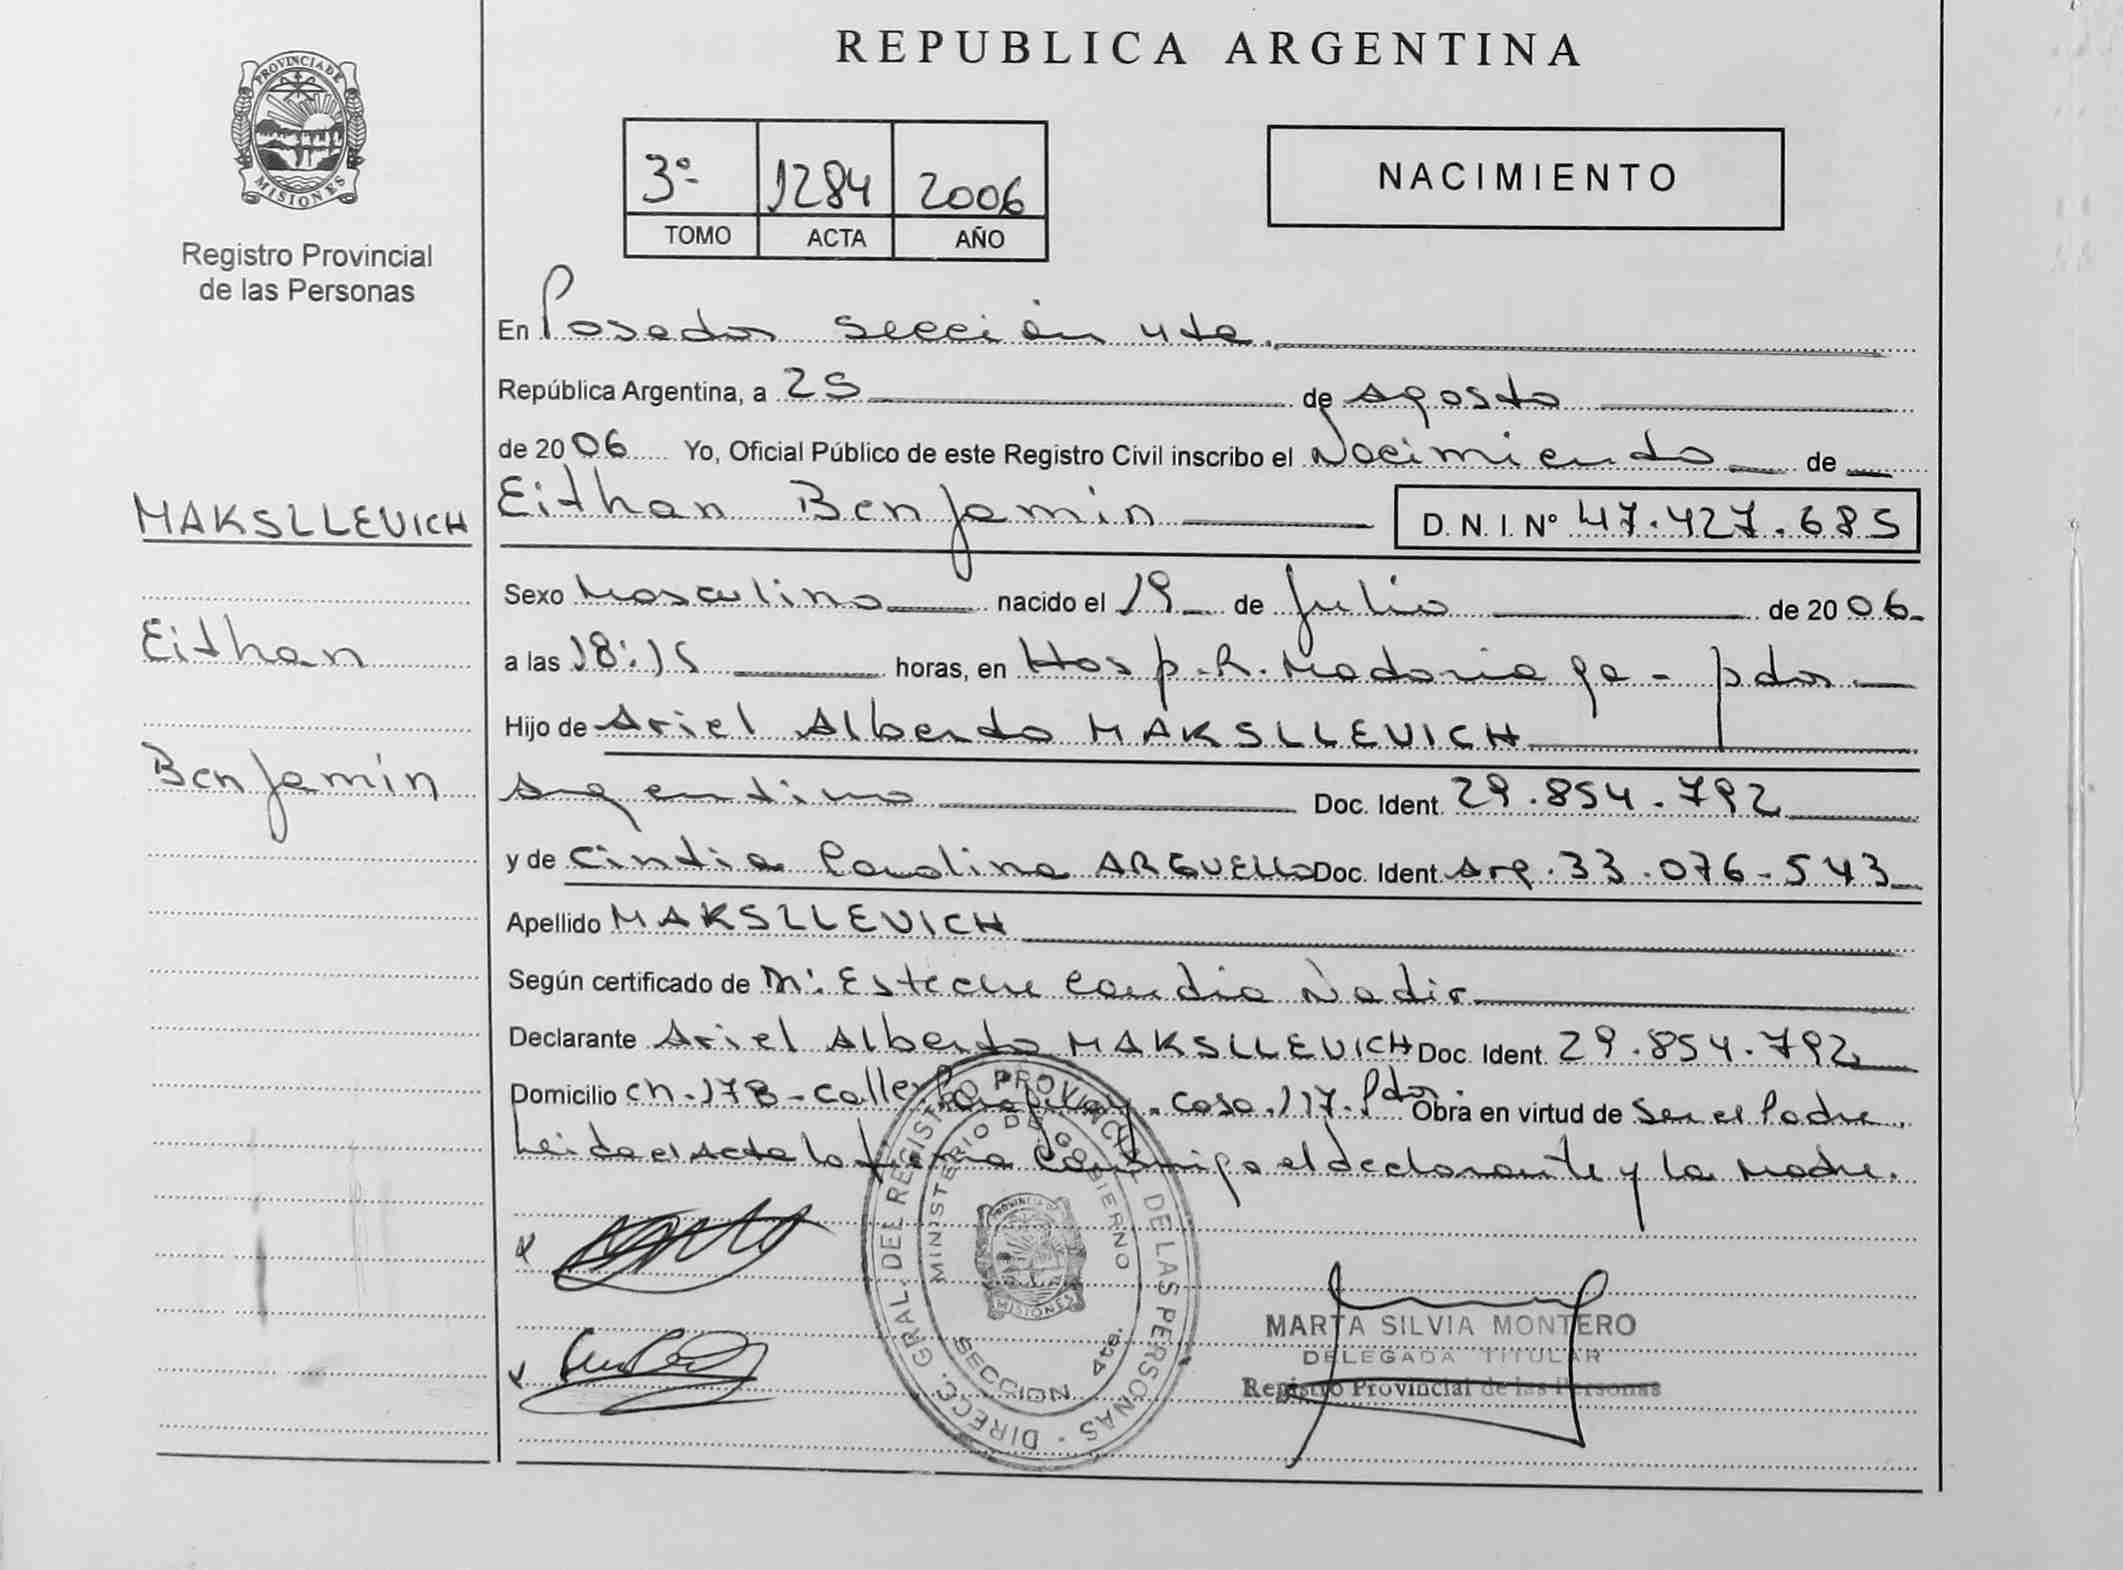 REPUBLICA ARGENTINA
PROVINCIA DE
MISIONES
Registro Provincial
de las Personas
3º 1284 2006
TOMO ACTA AÑO
NACIMIENTO
En Posadas sección 4ta.
República Argentina, a 25 de Agosto
de 2006 Yo, Oficial Público de este Registro Civil inscribo el Nacimiento de
MAKSLLEVICH
Eithan
Benjamín
Eithan Benjamín D. N. I. Nº 47.427.685
Sexo Masculino nacido el 19 de Julio de 2006-
a las 18:15 horas, en Hosp. R. Madariaga - pdas
Hijo de Ariel Alberto MAKSLLEVICH
Argentino Doc. Ident. 29.854.792
y de Cintia Carolina ARGUELLO Doc. Ident. Arg. 33.076-543
Apellido MAKSLLEVICH
Según certificado de Nadir
Declarante Ariel Alberto MAKSLLEVICH Doc. Ident. 29.854.792
Domicilio Ch.178-calle casa.117. Pdas. Obra en virtud de Ser el Padre.
Leida el Acta la firma Conmigo el declarante y la Madre.
DIRECC. GRAL. DEL REGISTRO PROVINCIAL DE LAS PERSONAS
MINISTERIO DE GOBIERNO
PROVINCIA DE
MISIONES
SECCION 4ta.
MARTA SILVIA MONTERO
DELEGADA TITULAR
Registro Provincial de las Personas